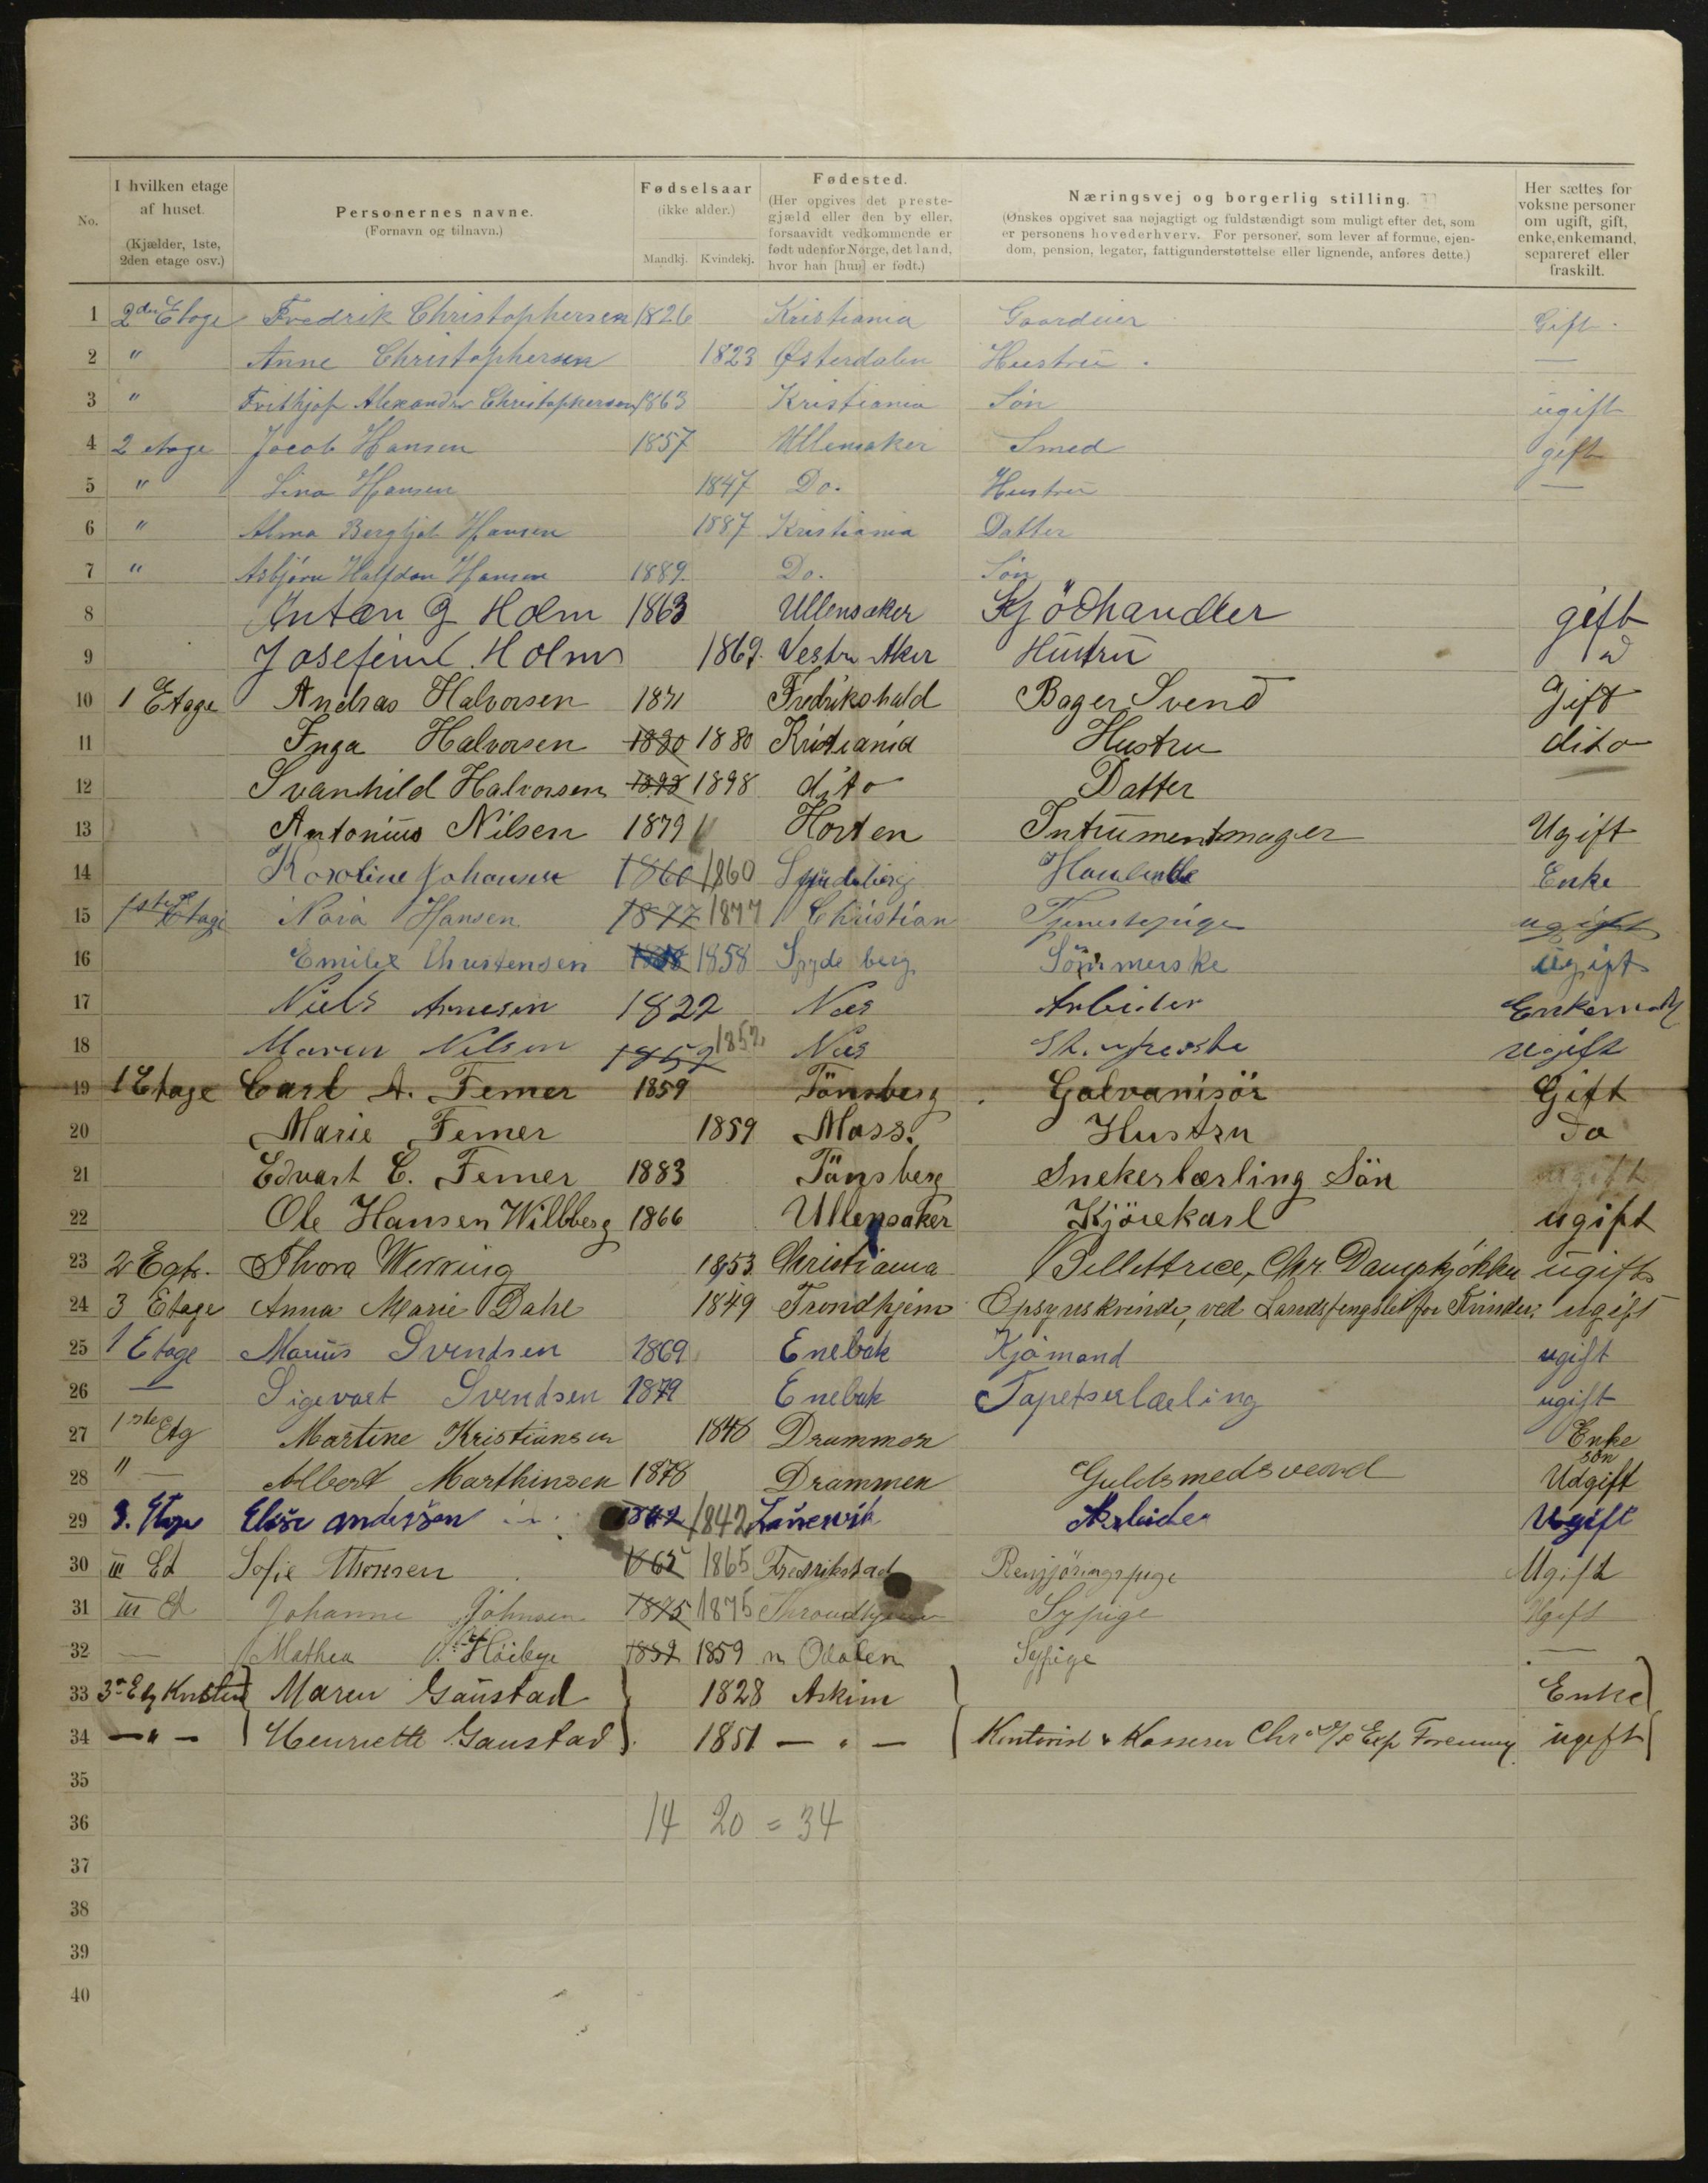 No.
I hvilken etage af huset. (Kjælder, 1ste, 2den etage osv.)
Personernes navne. (Fornavn og tilnavn.)
Fødselsaar (ikke alder.) Mandkj. Kvindekj.
Fødested. (Her opgives det prestegjæld eller den by eller, forsaavidt vedkommende er født udenfor Norge, det land, hvor han [hun] er født.)
Næringsvej og borgerlig stilling. (Ønskes opgivet saa nøjagtigt og fuldstændigt som muligt efter det, som er personens hovederhverv. For personer, som lever af formue, ejendom, pension, legater, fattigunderstøttelse eller lignende, anføres dette.)
Her sættes for voksne personer om ugift, gift, enke, enkemand, separeret eller fraskilt.
1 2den Etage Fredrik Christophersen 1826 Kristiania Gaardeier Gift.
2 " Anne Christophersen 1823 Østerdalen Hustru. —
3 " Frithjof Alexander Christophersen 1863 Kristiania Søn ugift
4 2 etage Jacob Hansen 1857 Ullensaker Smed gift
5 " Lina Hansen 1847 Do. Hustru —
6 " Alma Bergljot Hansen 1887 Kristiania Datter
7 " Asbjørn Halfdan Hansen 1889. Do. Søn
8 Anton G Holm 1863 Ullensaker Kjödhandler gift
9 Josefine Holm 1869. Vestre Aker Hustru
10 1 Etage Andras Halvorsen 1871 Fredrikshald Bager Svend Gift
11 Inga Halvorsen 1880 1880 Kristiania Hustru dito
12 Svanhild Halvorsen 1898 1898 dito Datter
13 Antonius Nilsen 1879 Horten Intrumentmager Ugift
14 Karoline Johansen 1860 1860 Spydeberg Enke
15 1ste Etage Nora Hansen 1877 1877 Christian Tjenestepige ugift
16 Emilie Christensen 1858 1858 Spydeberg Sömmerske ugift
17 Niels Arnesen 1822 Næs Arbeider Enkem
18 Maren Nilsen 1852 1852 Næs ugift
19 1 Etage Carl A. Femer 1859 Tönsberg Galvanisör Gift
20 Marie Femer 1859 Moss. Hustru Do
21 Edvart C. Femer 1883 Tönsberg Snekerlærling Sön ugift
22 Ole Hansen Willberg 1866 Ullensaker Kjörekarl ugift
23 2 Egt. Thora Werring 1853 Christiania Billettrice, Chr. Dampkjökken ugift
24 3 Etage Anna Marie Dahl 1849 Trondhjem Opsynskvinde, ved Landsfengslet for Kvinder. ugift
25 1 Etage Marius Svendsen 1869 Enebak Kjömand ugift
26 — Sigevart Svendsen 1879 Enebak Tapetserlærling ugift
27 1ste Etg Martine Kristiansen 1846 Drammen Enke
28 " — Albert Marthinsen 1878 Drammen Guldsmedsvend sön Udgift
29 3. Etage Elise andersen 1842 1842 Laurvik Arbeider Ugift
30 III Et Sofie Thorsen 1865 1865 Fredrikstad Rengjöringspige Ugift
31 III Et Johanne Johnsen 1875 1875 Throndhjem Sypige Ugift
32 — Mathea Höibye 1859 1859 n Odalen Sypige —
33 3 Etg Kvisten Maren Gaustad 1828 Askim Enke
34 — " — Henriette Gaustad 1851 — " — Kontorist & Kasserer Chr Exp Forening. ugift
35
36 14 20 = 34
37
38
39
40